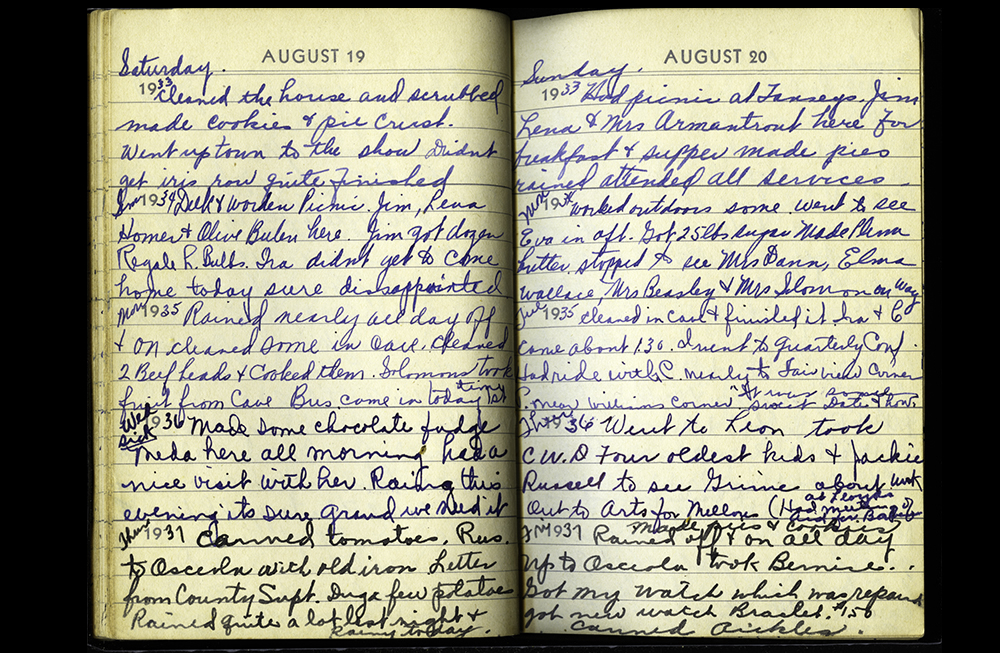 AUGUST 19
Saturday.
1933 Cleaned the house and scrubbed
made cookies & pie crust.
Went up town to the show Didnt
get iris row quite finished
Sun 1934 Delk & Worden Picnic. Jim, Lena
Homer & Olive Bulen here. Jim got dozen
Regale L. Bulbs. Ira didnt get to come
home today sure dissappointed
Mon 1935 Rained nearly all day off
& on cleaned some in cave. cleaned
2 Beef heads & cooked them. Solomons took
fruit from Cave Bus. came in today 1st time
Wed 1936 Made some chocolate fudge
sick Meda here all morning had a
nice visit with her. Raining this
evening its sure grand we need it
Thurs 1937 Canned tomatoes. Rus.
to Osceola with old iron Letter
from County Supt. Dug a few potatoes
Rained quite a lot last night &
rainy today.
AUGUST 20
Sunday.
1933 Had picnic at Tanseys. Jim
Lena & Mrs Armantrout here for
breakfast & supper made pies
rained attended all services
Mon 1934 worked outdoors some. went to see
Eva in aft. Got 25 lbs sugar Made Plum
butter, stopped to see Mrs Dann, Elma
Wallace, Mrs Beasley & Mrs Solomon on way
Tue 1935 cleaned in cave & finished it. Ira & E
came about 1.30. I went to Quarterly Conf.
Had ride with C. nearly to Fairview Corner
near Williams Corner "It was
sweet
1936 Went to Leon took
C.W.D Four oldest kids & Jackie
Russell to see Ginnie about work
Out to Arts for Mellons (Had meeting
at
made pies & cookies
Fri 1937 Rained off & on all day
Up to Osceola took Bernice.
Got my watch which was repaired
got new watch Braclet. $1.50
Canned Pickles.